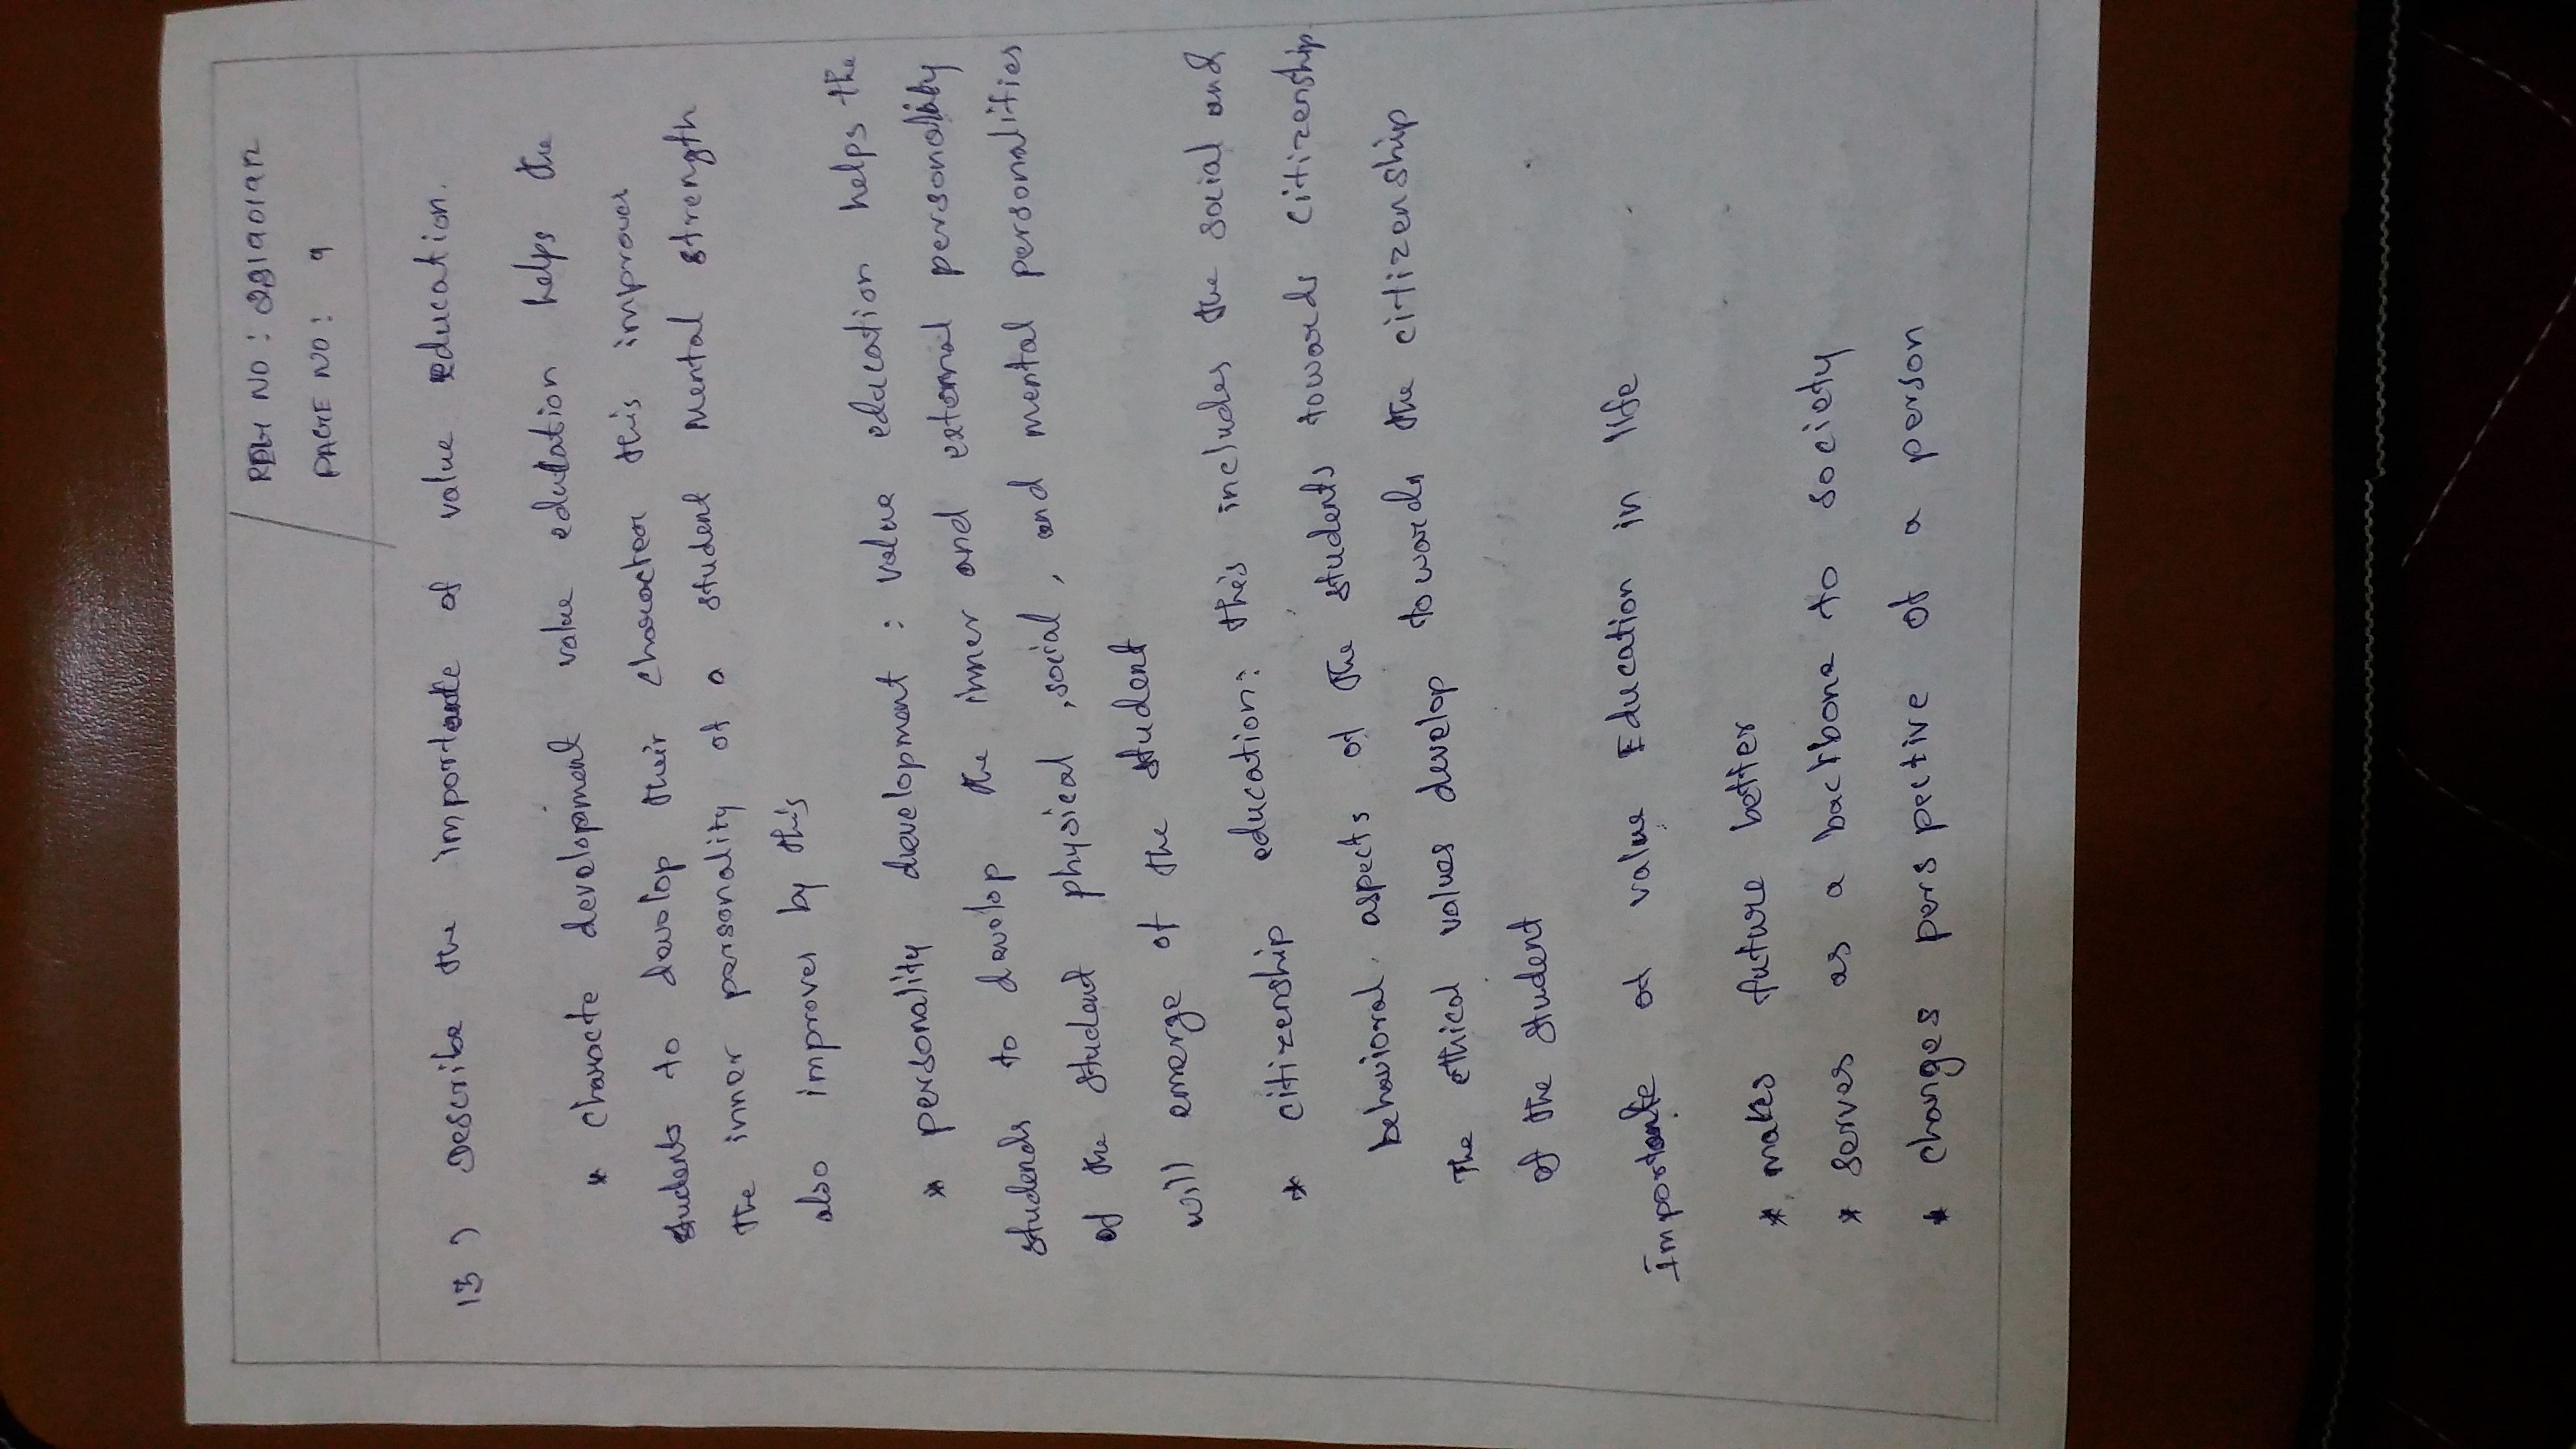 REG NO :
PAGE NO : 9
13 ) Describe the importance of value education.
* characte development value education helps the
students to develop their character this improves
the inner personality of a student Mental strength
also improves by this
* personality development : value education helps the
students to develop the inner and external personality
of the student physical , social , and mental personalities
will emerge of the student
* citizenship education: this includes the social and
behavioral aspects of the students towards citizenship
The ethical values develop towards the citizenship
of the student
Importance of value Education in life
* makes future better
* serves as a backbone to society
* changes perspective of a person